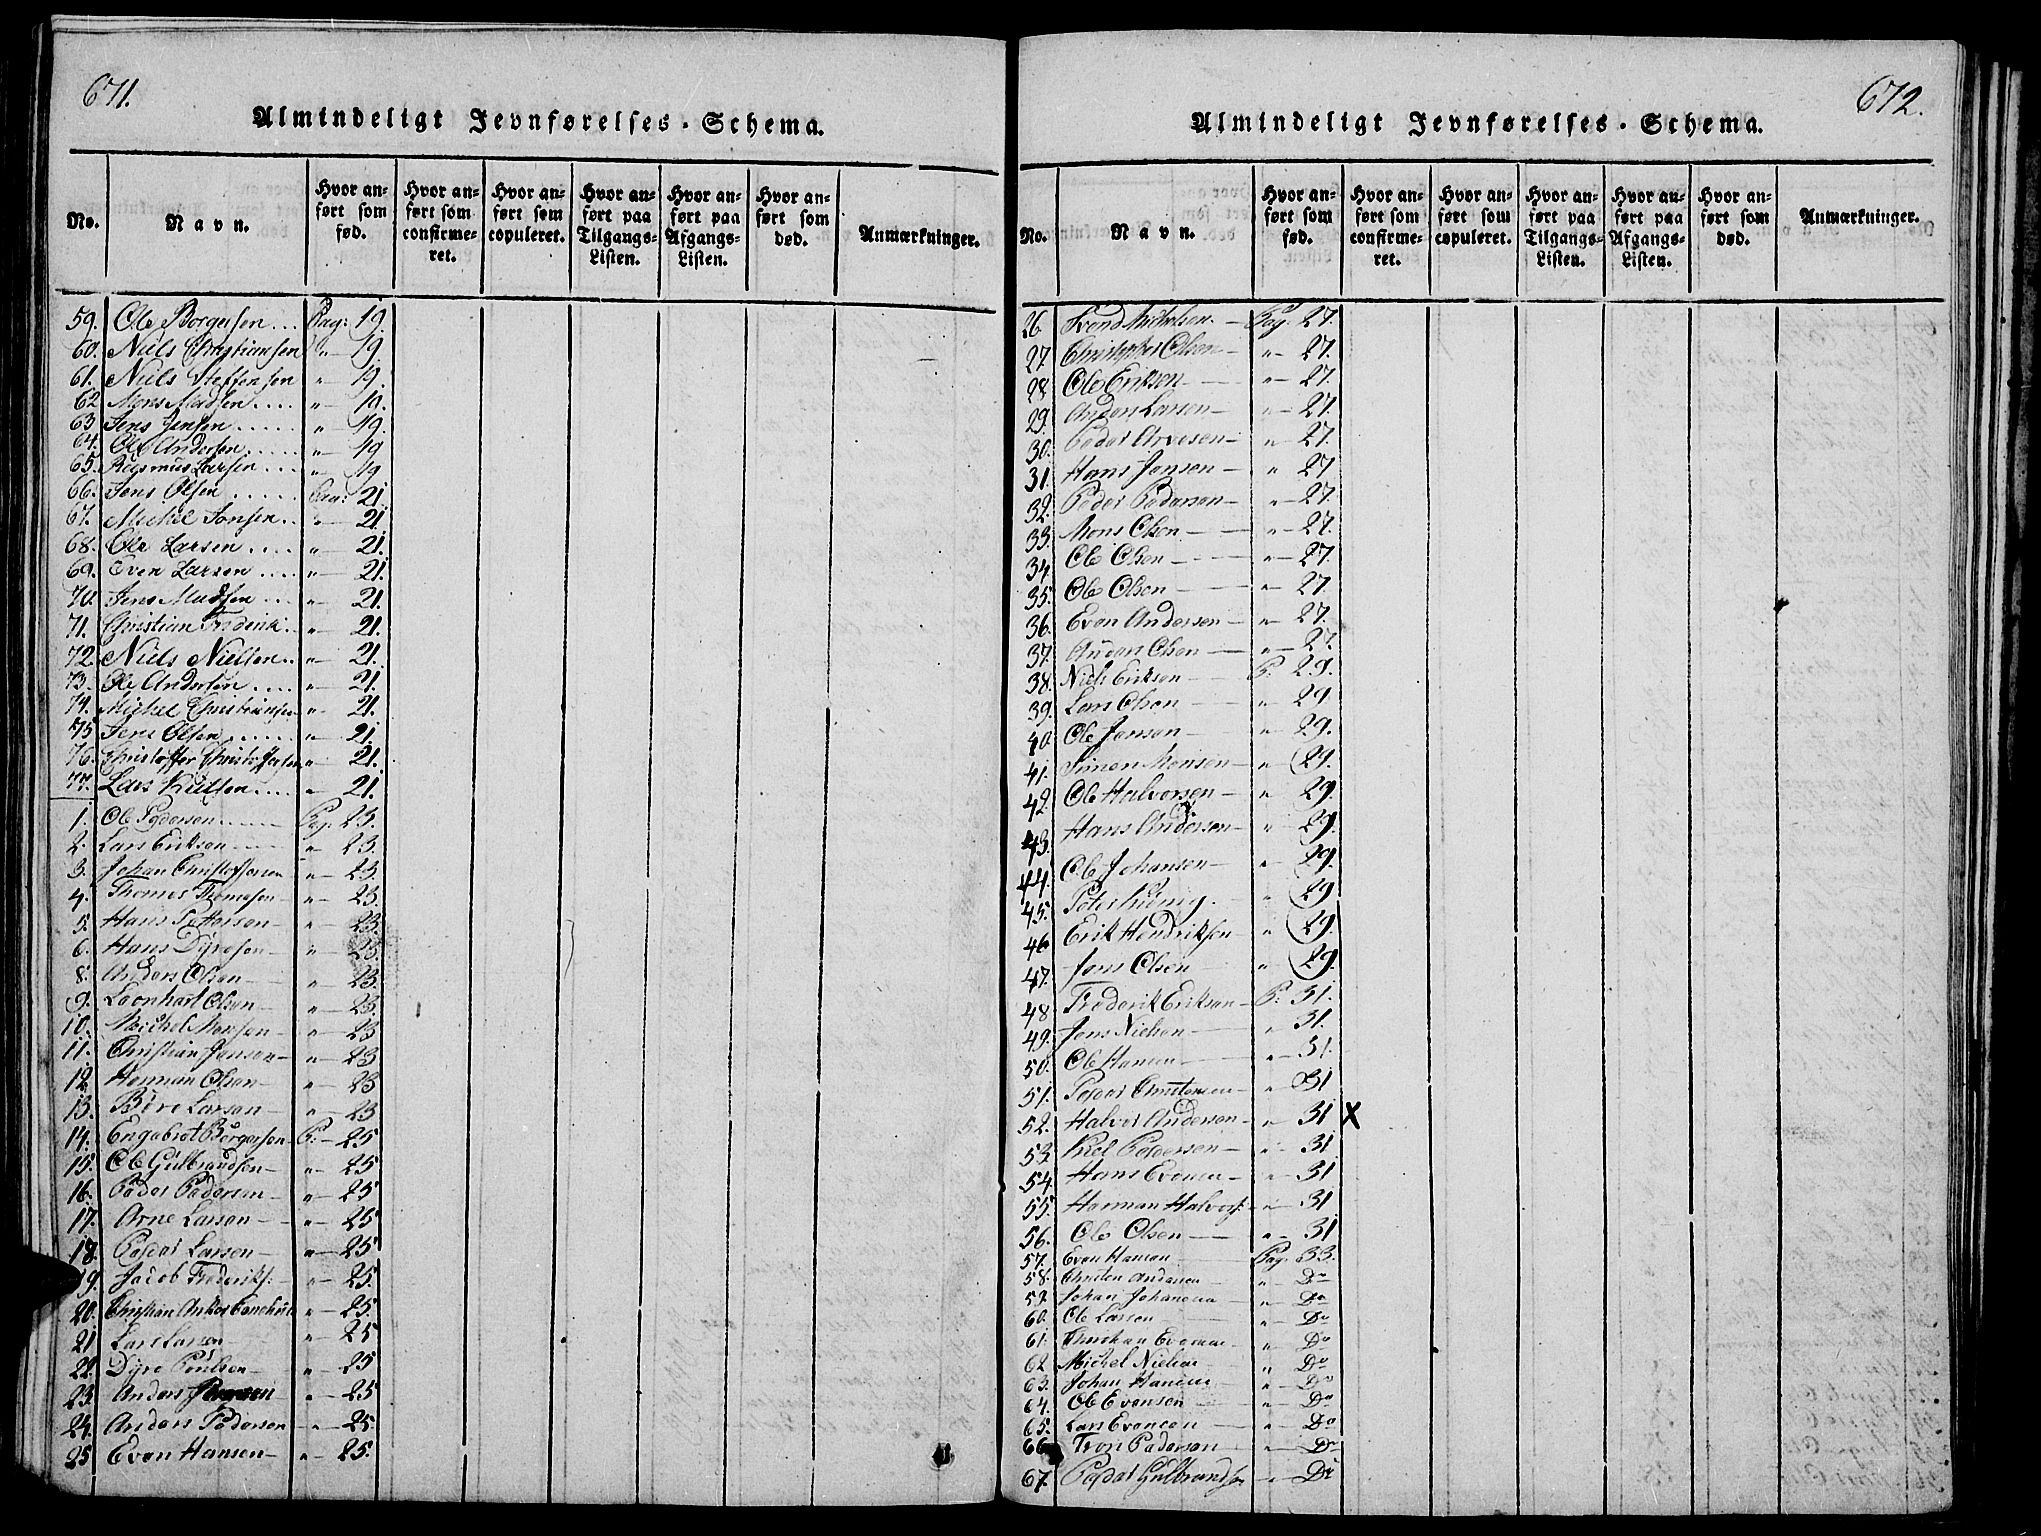 671.
Almindeligt Jevnførelses-Schema.
No.
Navn.
Hvor an-
ført som
fød.
Hvor an-
ført som
confirme-
ret.
Hvor an-
ført som
copuleret.
Hvor an-
ført paa
Tilgangs-
Listen.
Hvor an-
ført paa
Afgangs-
Listen.
Hvor an-
ført som
død.
Anmærkninger.
59. Ole Borgersen... Pag: 19.
60. Niels Christiansen " 19.
61. Niels Steffensen " 19.
62 Mons Madsen.... " 19.
63 Jens Jensen..... " 19.
64. Ole Andersen..... " 19
65. Rasmus Larsen.... " 19
66. Jens Olsen..... Pag: 21.
67. Michel Jensen.. " 21.
68. Ole Larsen.... " 21.
69. Even Larsen.... " 21.
70. Jens Madsen... " 21.
71. Christian Frederik.. " 21.
72. Niels Nielsen.. " 21.
73. Ole Andersen.... " 21.
74. Michel Christiansen " 21.
75 Jens Olsen...... " 21.
76. Christoffer Christoffersen " 21.
77. Lars Knutsen.... " 21.
1. Ole Pedersen...... Pag: 23.
2. Lars Eriksen " 23.
3. Johan Christoffersen " 23.
4. Thomes Thomesen " 23.
5. Hans Pettersen " 23.
6. Hans Dyresen " 23.
8. Anders Olsen " 23.
9. Leonhart Olsen " 23.
10. Michel Monsen " 23
11. Christian Jensen " 23
12. Herman Olsen " 23
13. Børe Larsen " 23
14. Engebret Børgersen P: 25
15. Ole Gulbrandsen " 25
16. Peder Pedersen " 25
17. Arne Larsen " 25
18. Peder Larsen " 25
19. Jacob Frederiks: " 25.
20. Christian Anker " 25.
21 Lars Larsen " 25
22. Dyre Poulsen " 25
23. Anders " 25
24. Anders Pedersen " 25
25 Even Hansen " 25.
672.
Almindeligt Jevnførelses-Schema.
No.
Navn.
Hvor an-
ført som
fød.
Hvor an-
ført som
confirme-
ret.
Hvor an-
ført som
copuleret.
Hvor an-
ført paa
Tilgangs-
Listen.
Hvor an-
ført paa
Afgangs-
Listen.
Hvor an-
ført som
død.
Anmærkninger.
26 Svend Michelsen. Pag: 27.
27 Christopher Olsen " 27.
28 Ole Eriksen " 27.
29. Anders Larsen " 27.
30. Peder Arvesen " 27.
31. Hans Jensen " 27
32. Peder Pedersen " 27.
33. Mons Olsen " 27.
34. Ole Olsen " 27.
35. Ole Olsen " 27.
36. Even Andersen " 27.
37. Auden Olsen " 27.
38. Niels Eriksen P: 29.
39. Lars Olsen " 29
40 Ole Jensen " 29.
41. Simen Monsen " 29.
42. Ole Halvorsen " 29.
43. Hans Andersen " 29.
44. Ole Johansen " 29.
45. Peter " 29
46 Erik Hendriksen " 29.
47. Jens Olsen " 29.
48 Frederik Eriksen P: 31.
49. Jens Nielsen " 31.
50. Ole Hansen " 31.
51. Peder Christensen " 31
52. Halvor Andersen " 31 X
53. Kiel Pedersen " 31
54. Hans Evensen " 31
55. Herman Halvors: " 31
56. Ole Olsen " 31
57. Even Hansen Pag: 33.
58. Christen Andersen " Do
59. Johan Johansen " Do
60. Ole Larsen " Do
61. Christian Evensen " Do
62 Michel Nielsen " Do
63. Johan Hansen " Do
64. Ole Evensen " Do
65. Lars Evensen " Do
66 Tron Pedersen " Do
67. Peder Gulbrandsen " Do